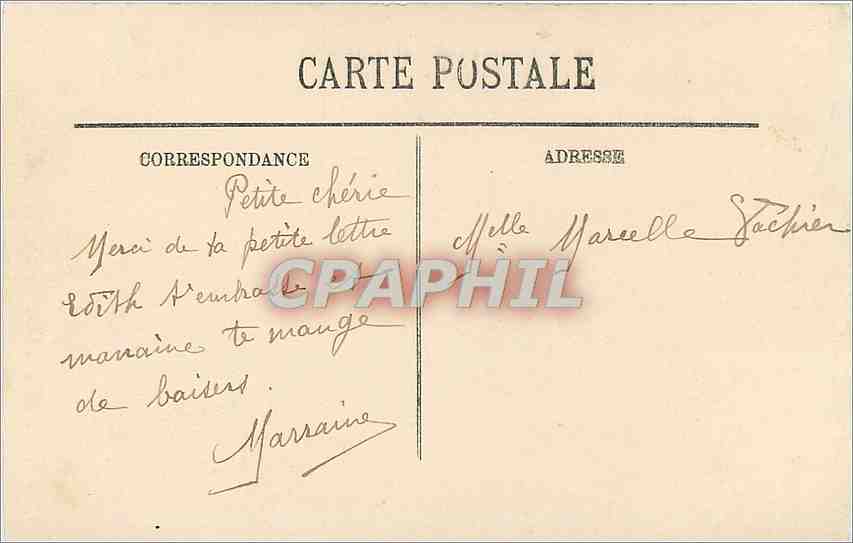 CARTE POSTALE
CORRESPONDANCE
ADRESSE
Petite chérie
Merci de ta petite lettre
Edith t'embrasse et
marraine te mange
de baisers.
Marraine
Melle Marcelle
CPAPHIL